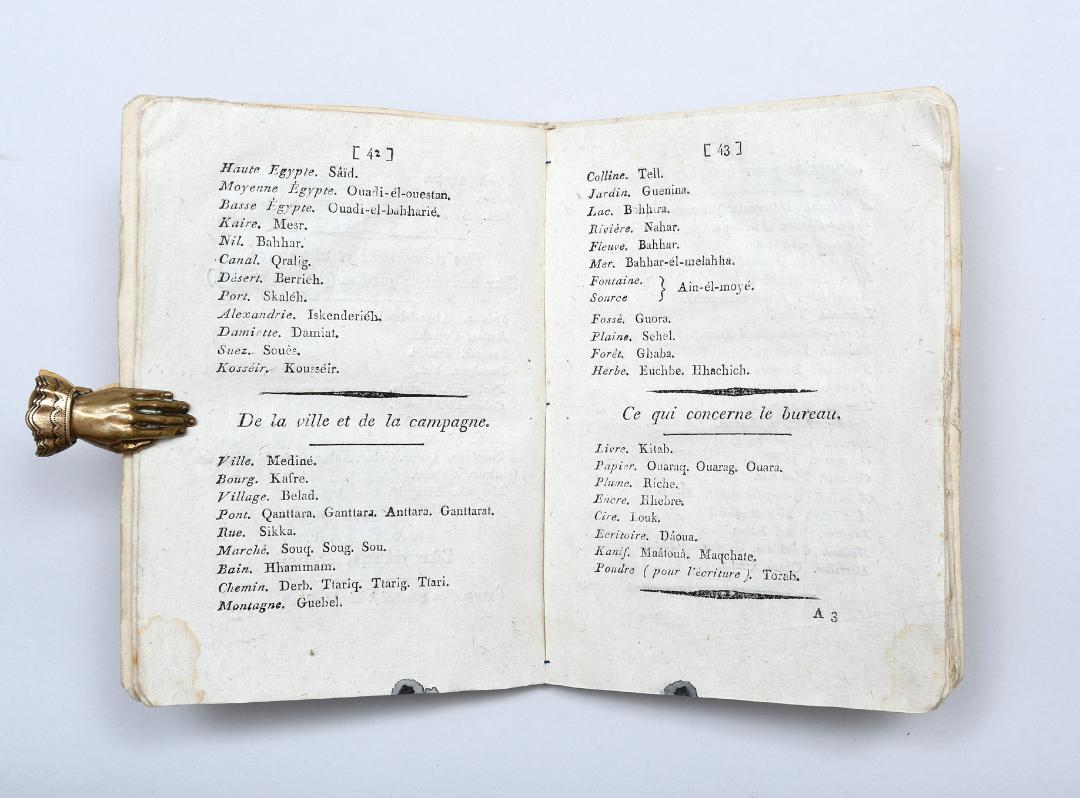 [ 42 ]
Haute Egypte. Sâïd.
Moyenne Égypte. Ouadi-él-ouestan.
Basse Égypte. Ouadi-el-bahharié.
Kaire. Mesr.
Nil. Bahhar.
Canal. Qralig.
Désert. Berriéh.
Port. Skaléh.
Alexandrie. Iskenderiéh.
Damiette. Damiat.
Suez. Souès.
Kosséir. Kousséir.
De la ville et de la campagne.
Ville. Mediné.
Bourg. Kafre.
Village. Belad.
Pont. Qanttara. Ganttara. Anttara. Ganttarat.
Rue. Sikka.
Marché. Souq. Soug. Sou.
Bain. Hhammam.
Chemin. Derb. Ttariq. Ttarig. Ttari.
Montagne. Guebel.
[ 43 ]
Colline. Tell.
Jardin. Guenina.
Lac. Bahhira.
Rivière. Nahar.
Fleuve. Bahhar.
Mer. Bahhar-él-melahha.
Fontaine. } Ain-él-moyé.
Source
Fossé. Guora.
Plaine. Sehel.
Forêt. Ghaba.
Herbe. Euchbe. Hhachich.
Ce qui concerne le bureau.
Livre. Kitab.
Papier. Ouaraq. Ouarag. Ouara.
Plume. Riche.
Encre. Hhebre.
Cire. Louk.
Ecritoire. Dáoua.
Kanif. Maátouá. Maqchate.
Poudre ( pour l'écriture ). Torab.
A 3